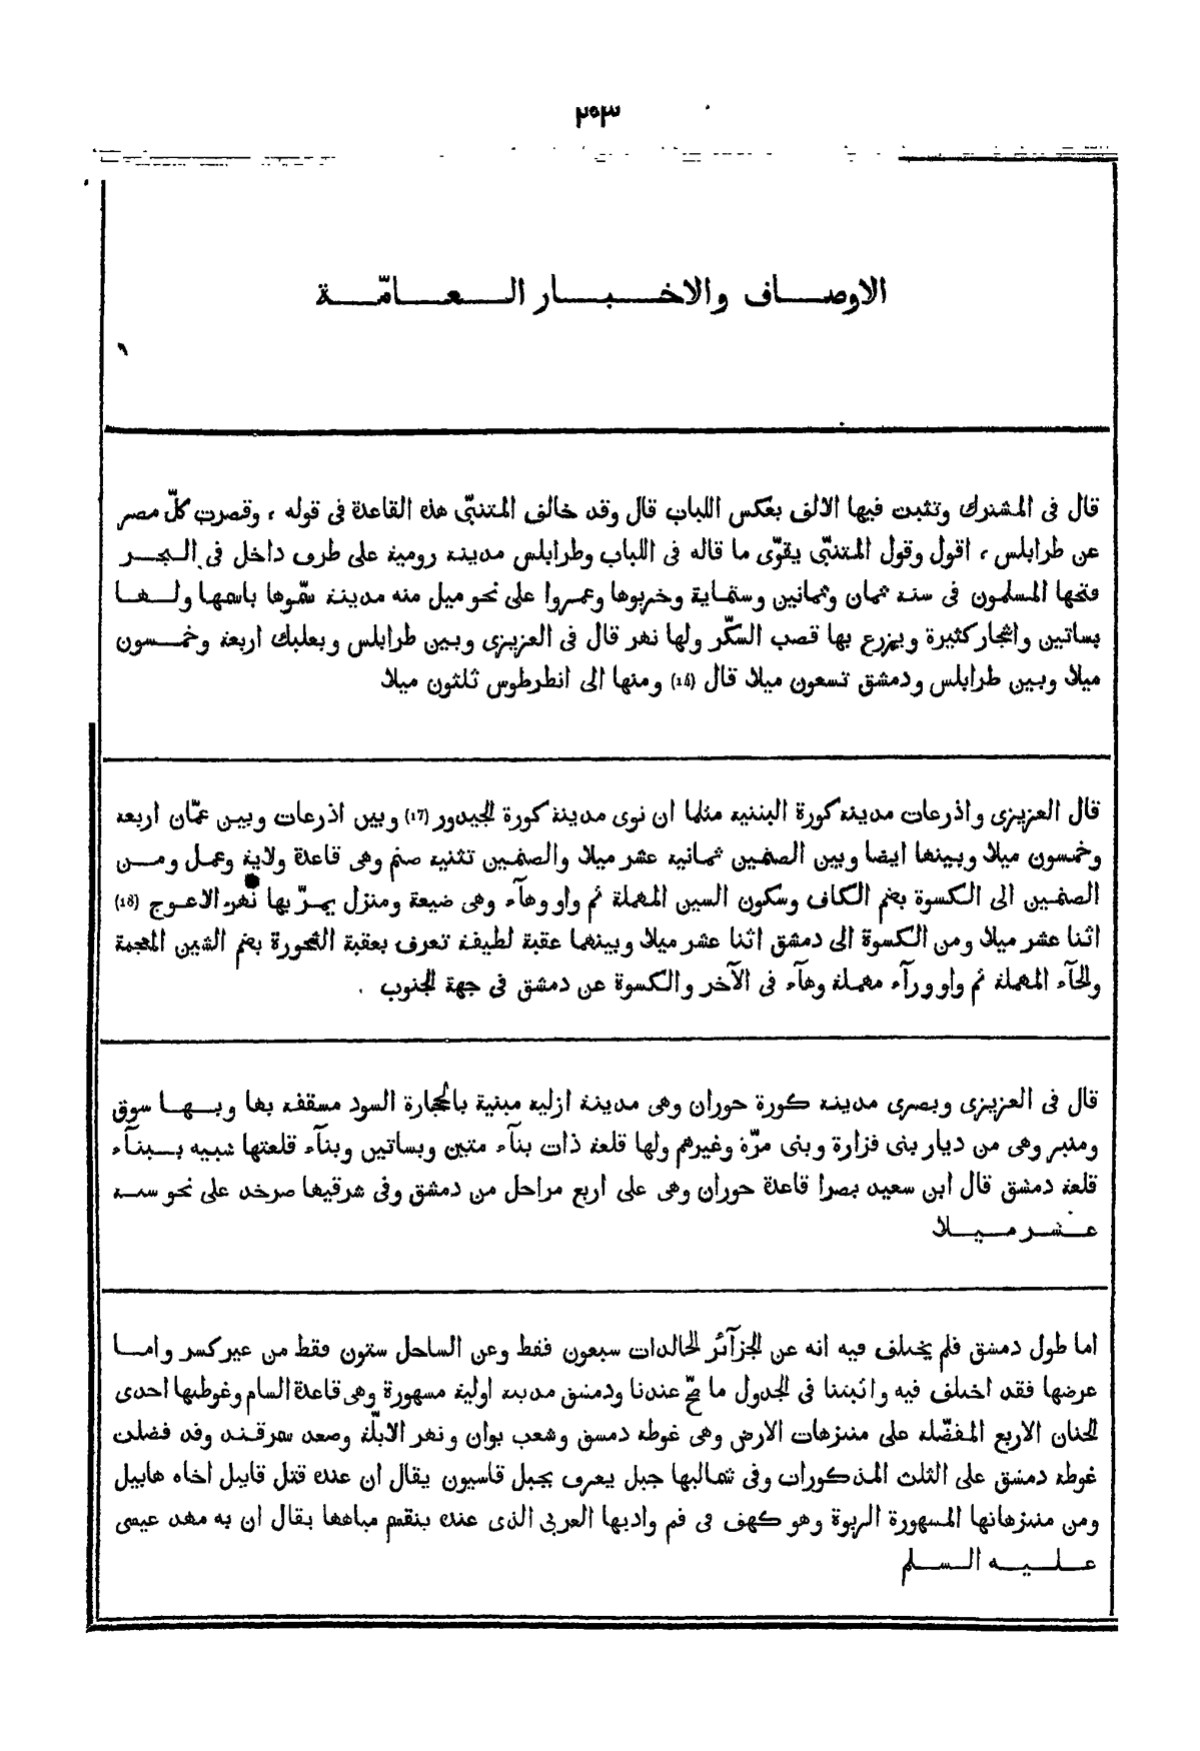 ٢٥٣
الاوصاف والاخبار العامّة
قال فى المشترك وتثبت فيها الالف بعكس اللباب قال وقد خالف المتنبّى هذه القاعدة فى قوله ، وقصرت كلّ مصر
عن طرابلس ، اقول وقول المتنبّى يقوّى ما قاله فى اللباب وطرابلس مدينة رومية على طرف داخل فى البحر
فتحها المسلمون فى سنة ثمان وثمانين وستماية وخربوها وعمروا على نحو ميل منه مدينة سمّوها باسمها ولها
بساتين واشجار كثيرة ويزرع بها قصب السكّر ولها نهر قال فى العزيزى وبين طرابلس وبعلبك اربعة وخمسون
ميلا وبين طرابلس ودمشق تسعون ميلا قال (16) ومنها الى انطرطوس ثلثون ميلا
قال العزيزى واذرعات مدينة كورة البثنية مثلما ان نوى مدينة كورة الجيدور (17) وبين اذرعات وبين عمّان اربعة
وخمسون ميلا وبينها ايضا وبين الصنمين ثمانية عشر ميلا والصنمين تثنية صنم وهى قاعدة ولاية وعمل ومن
الصنمين الى الكسوة بضم الكاف وسكون السين المهملة ثم واو وهآء وهى ضيعة ومنزل يمرّ بها نهر الاعوج (18)
اثنا عشر ميلا ومن الكسوة الى دمشق اثنا عشر ميلا وبينهما عقبة لطيفة تعرف بعقبة الشحورة بضم الشين المعجمة
والحآء المهملة ثم واو ورآء مهملة وهآء فى الآخر والكسوة عن دمشق فى جهة الجنوب .
قال فى العزيزى وبصرى مدينة كورة حوران وهى مدينة ازلية مبنية بالحجارة السود مسقفة بها وبها سوق
ومنبر وهى من ديار بنى فزارة وبنى مرّة وغيرهم ولها قلعة ذات بنآء متين وبساتين وبنآء قلعتها شبيه ببنآء
قلعة دمشق قال ابن سعيد بصرا قاعدة حوران وهى على اربع مراحل من دمشق وفى شرقيها صرخد على نحو ستة
عشر ميلا
اما طول دمشق فلم يختلف فيه انه عن الجزآئر الخالدات سبعون فقط وعن الساحل ستون فقط من غير كسر واما
عرضها فقد اختلف فيه واثبتنا فى الجدول ما صحّ عندنا ودمشق مدينة اولية مشهورة وهى قاعدة الشام وغوطتها احدى
الجنان الاربع المفضّلة على منتزهات الارض وهى غوطة دمشق وشعب بوان ونهر الابلّة وصغد سمرقند وقد فضلت
غوطة دمشق على الثلث المذكورات وفى شماليها جبل يعرف بجبل قاسيون يقال ان عنده قتل قابيل اخاه هابيل
ومن منتزهاتها المشهورة الربوة وهو كهف فى فم واديها الغربى الذى عنده ينقسم مياهها يقال ان به مهد عيسى
عليه السلم